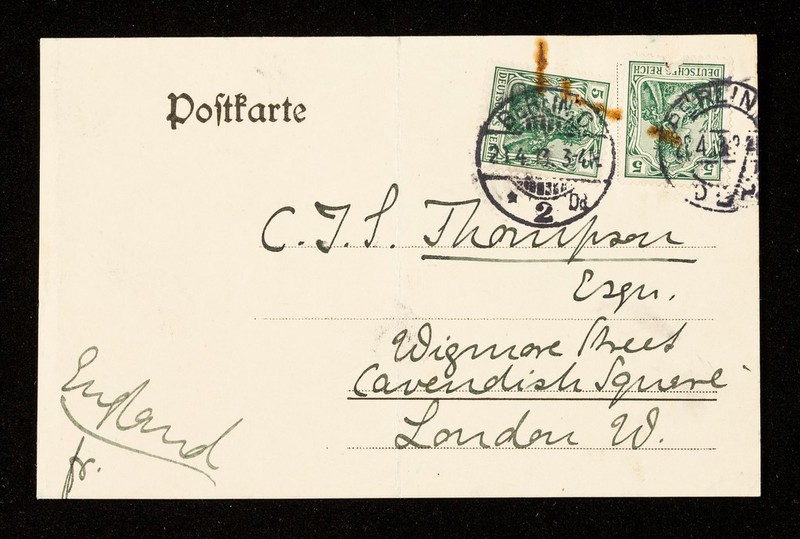 Postkarte
DEUTSCHES REICH
5
5
DEUTSCHES REICH
5
5
BERLIN
3-4N.
* 2
BERLIN
C. J. S. Thompson
Esqu.
Wigmore Street
Cavendish Square
London W.
England
fr.